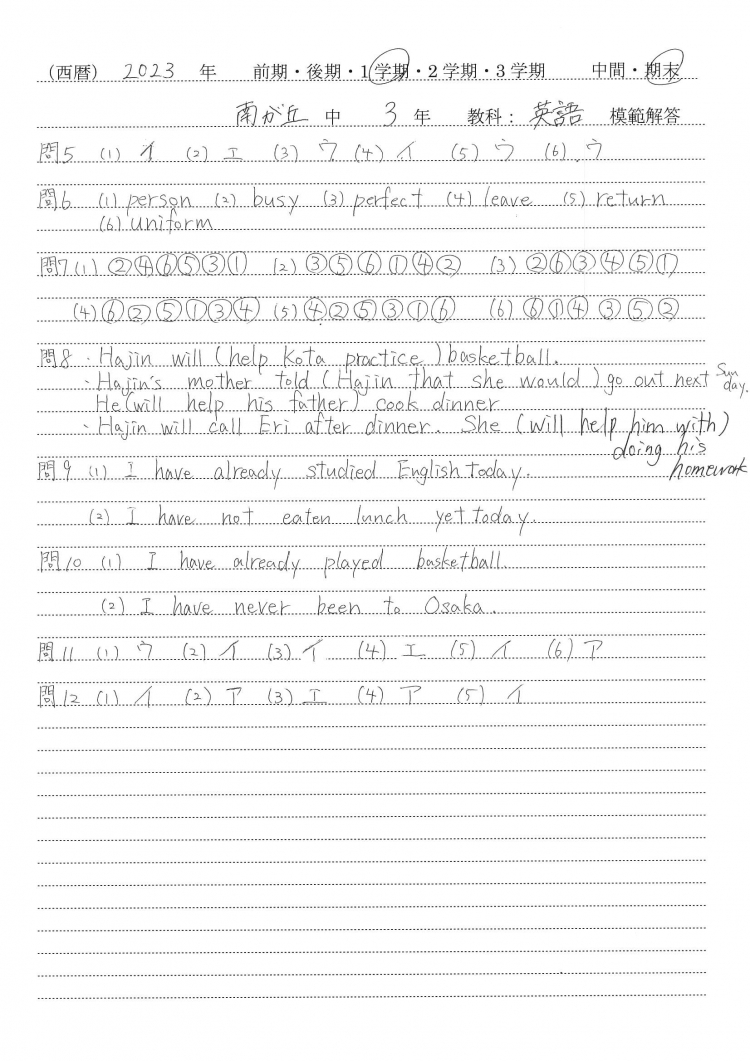 (西暦) 2023 年 前期・後期・1学期・2学期・3学期 中間・期末
南が丘 中 3 年 教科: 英語 模範解答
問5 (1) イ (2) エ (3) ウ (4) イ (5) ウ (6) ウ
問6 (1) person (2) busy (3) perfect (4) leave (5) return
(6) uniform
問7 (1) ②④⑥⑤③① (2) ③⑤⑥①④② (3) ②⑥③④⑤①
(4) ⑥②⑤①③④ (5) ④②⑤③①⑥ (6) ⑥①④③⑤②
問8 ・Hajin will (help Kota practice) basketball.
・Hajin's mother told (Hajin that she would) go out next Sunday.
He (will help his father) cook dinner
・Hajin will call Eri after dinner. She (will help him with)
doing his
homework
問9 (1) I have already studied English today.
(2) I have not eaten lunch yet today.
問10 (1) I have already played basketball.
(2) I have never been to Osaka.
問11 (1) ウ (2) イ (3) イ (4) エ (5) イ (6) ア
問12 (1) イ (2) ア (3) エ (4) ア (5) イ